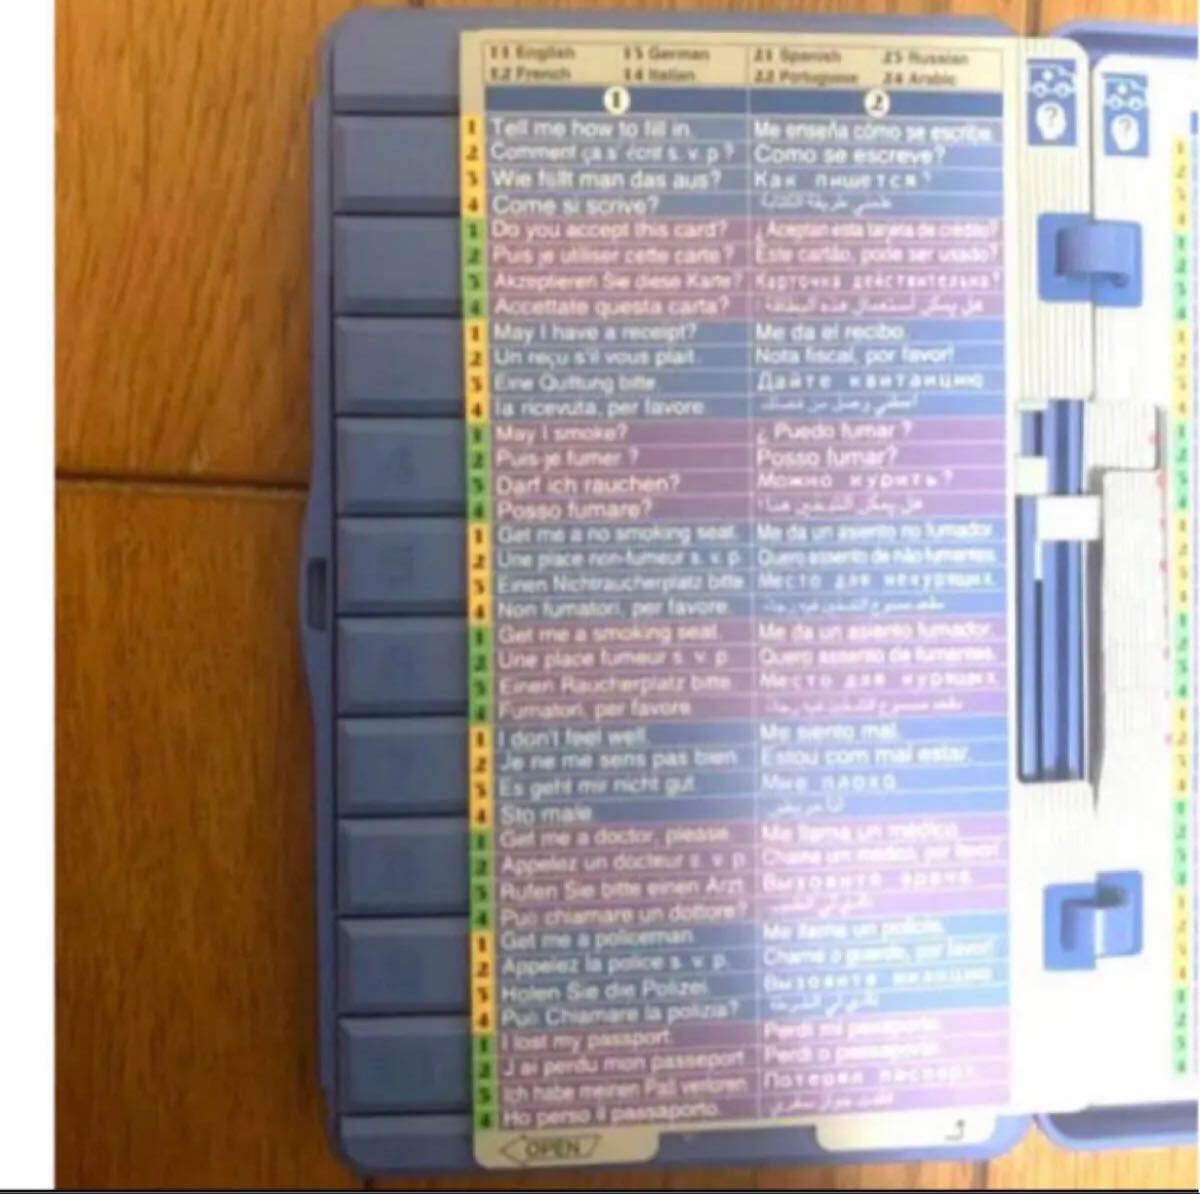 11 English 13 German 21 Spanish 23 Russian
12 French 14 Italian 22 Portuguese 24 Arabic
1 2
1 Tell me how to fill in. Me enseña cómo se escribe.
2 Comment ça s'écrit s. v. p? Como se escreve?
3 Wie füllt man das aus? Как пишется?
4 Come si scrive?
1 Do you accept this card? ¿Aceptan esta tarjeta de crédito?
2 Puis je utiliser cette carte? Este cartão, pode ser usado?
3 Akzeptieren Sie diese Karte? Карточка действительна?
4 Accettate questa carta? هل يمكن استعمال هذه البطاقة
1 May I have a receipt? Me da el recibo.
2 Un reçu s'il vous plait. Nota fiscal, por favor!
3 Eine Quittung bitte. Дайте квитанцию
4 la ricevuta, per favore
1 May I smoke? ¿ Puedo fumar ?
2 Puis-je fumer ? Posso fumar?
3 Darf ich rauchen? Можно курить?
4 Posso fumare? هل يمكن التدخين هنا؟
1 Get me a no smoking seat. Me da un asiento no fumador.
2 Une place non-fumeur s. v. p. Quero assento de não fumantes.
3 Einen Nichtraucherplatz bitte. Место для некурящих.
4 Non fumatori, per favore.
1 Get me a smoking seat. Me da un asiento fumador.
2 Une place fumeur s. v. p. Quero assento de fumantes.
3 Einen Raucherplatz bitte. Место для курящих.
4 Fumatori, per favore
1 I don't feel well. Me siento mal.
2 Je ne me sens pas bien Estou com mal estar.
3 Es geht mir nicht gut. Мне плохо
4 Sto male أنا مريض
1 Get me a doctor, please. Me llama un médico
2 Appelez un docteur s. v. p. Chame um médico, por favor!
3 Rufen Sie bitte einen Arzt. Вызовите врача.
4 Può chiamare un dottore?
1 Get me a policeman. Me llame un policía.
2 Appelez la police s. v. p. Chame o guarda, por favor!
3 Holen Sie die Polizei. Вызовите милицию
4 Può Chiamare la polizia?
1 I lost my passport. Perdí mi pasaporte.
2 J'ai perdu mon passeport Perdi o passaporte.
3 Ich habe meinen Paß verloren Потерял паспорт.
4 Ho perso il passaporto.
OPEN